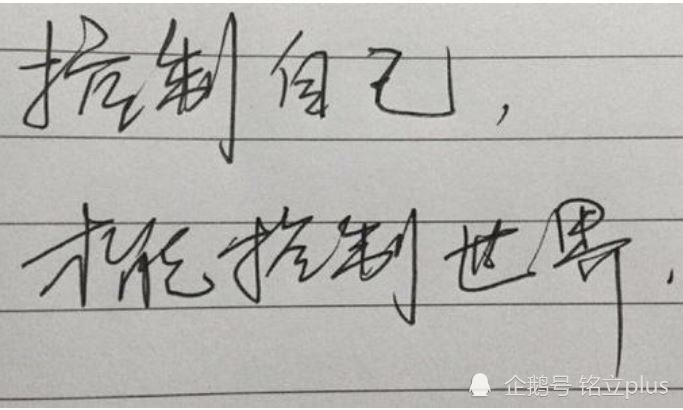 控制自己，
才能控制世界.
企鹅号 铭立plus